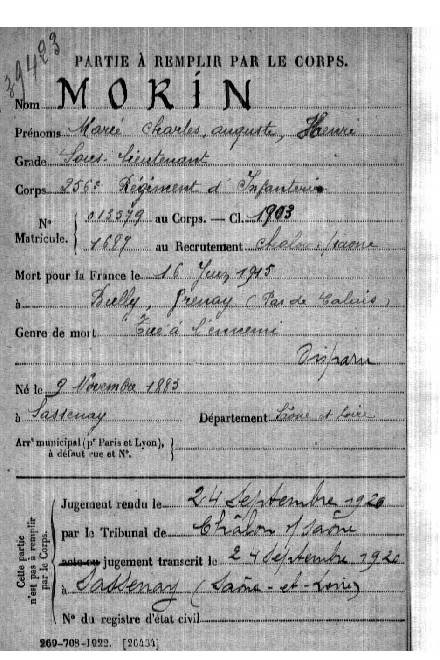 39423
PARTIE À REMPLIR PAR LE CORPS.
Nom MORIN
Prénoms Marie Charles, auguste, Henri
Grade Sous-Lieutenant
Corps 256e Régiment d'Infanterie
Nº 012379 au Corps. — Cl. 1903
Matricule. 1687 au Recrutement Chalon s/saone
Mort pour la France le 16 Juin 1915
à Bully, Grenay (Pas de Calais)
Genre de mort Tué à l'ennemi
Disparu
Né le 9 Novembre 1883
à Sassenay Département Saône et Loire
Arrt municipal (pr Paris et Lyon),
à défaut rue et Nº.
Cette partie
n'est pas à remplir
par le Corps.
Jugement rendu le 24 Septembre 1920
par le Tribunal de Châlon s/Saône
acte ou jugement transcrit le 24 Septembre 1920
à Sassenay (Saône-et-Loire)
Nº du registre d'état civil
269-708-1922. [26434]